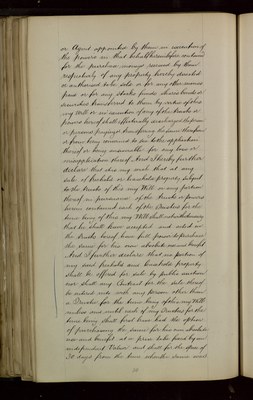 or Agent appointed by them in execution of
the powers in that behalf hereinbefore contained
for the purchase moneys received by them
respectively of any property hereby directed
or authorized to be sold or for any other moneys
paid or for any stocks funds shares bonds or
securities transferred to them by virtue of this
my Will or in execution of any of the trusts or
powers hereof shall effectually discharge the person
or persons paying or transferring the same therefrom
or from being concerned to see to the application
thereof or being answerable for any loss or
misapplication thereof And I hereby further
declare that upon any sale
sale of freehold or leasehold property subject
to the trusts of this my Will or any portion
thereof in pursuance of the trusts or powers
herein contained each of the Trustees for the
time being of this my Will shall notwithstanding
that he shall have accepted and acted in
the trusts hereof have full power to purchase
the same for his own absolute use and benefit
And I further declare that no portion of
my said freehold and leasehold property
shall be offered for sale by public auction
nor shall any Contract for the sale thereof
be entered into with any person other than
a Trustee for the time being of this my Will
unless and until each of my Trustees for the
time being shall first have had the option
of purchasing the same for his own absolute
use and benefit at a price to be fixed by an
independent Valuer and shall for the space of
30 days from the time when the same was